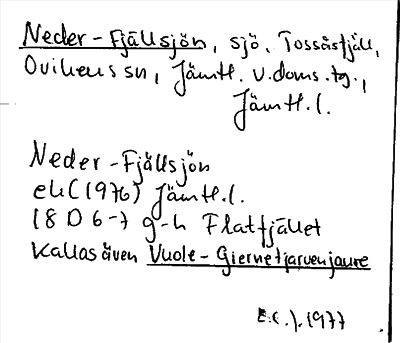 Neder-Fjällsjön, sjö, Tossåsfjäll,
Ovikens sn, Jämtl. v. doms. tg.,
Jämtl. l.
Neder-Fjällsjön
ek (1976) Jämtl. l.
18 D 6-7 g-h Flatfjället
Kallas även Vuole-Giernetjarvenjaure
E.C.J. 1977